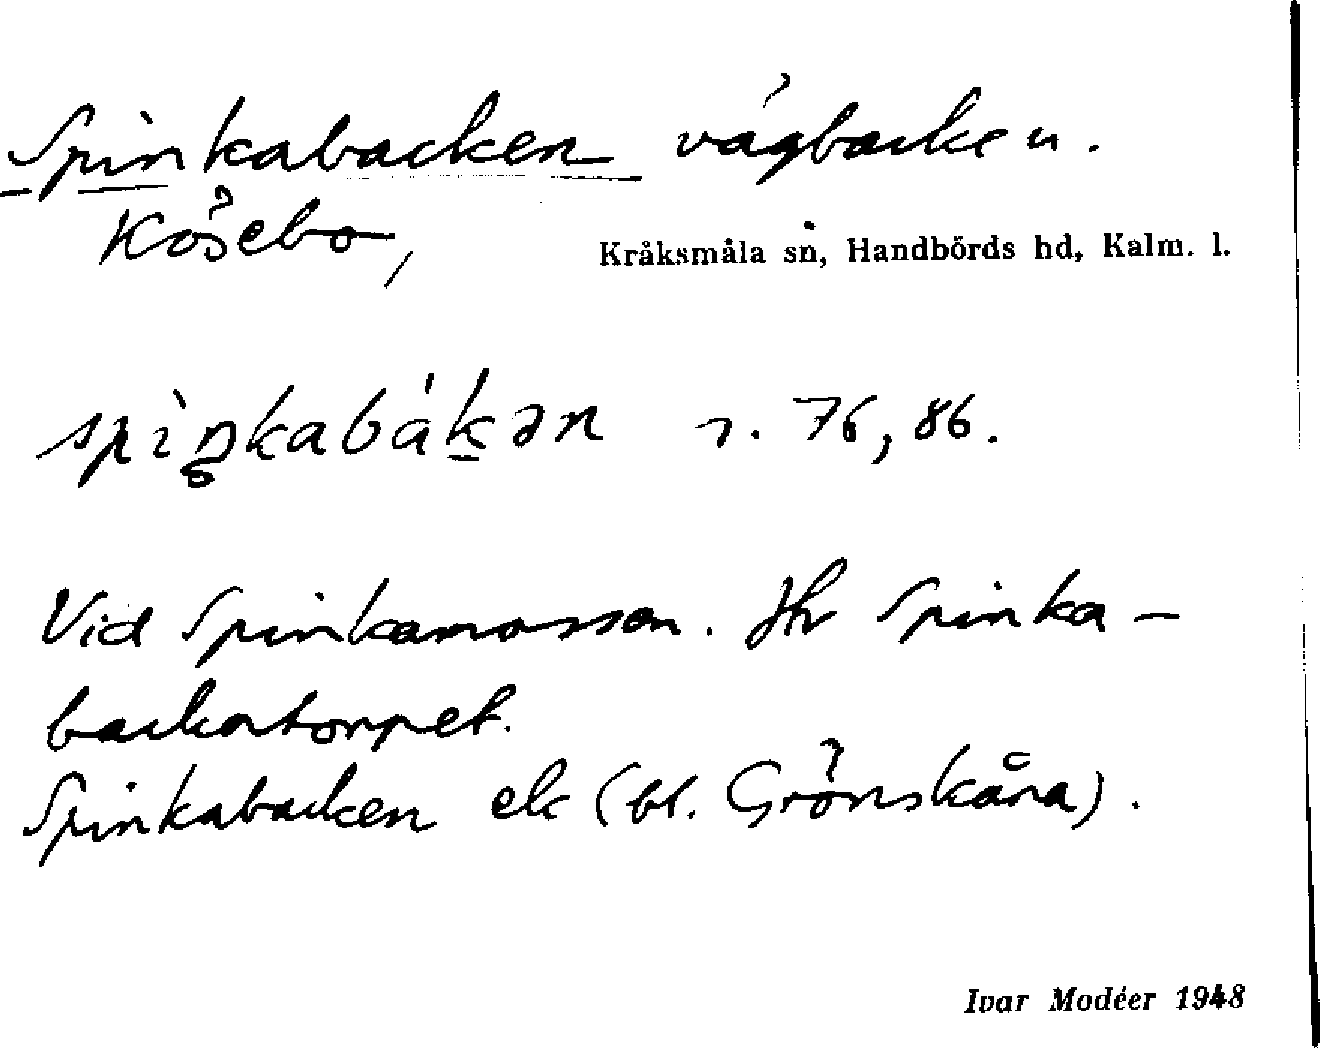 Spinkabacken vägbacke u.
Kösebo,
Kråksmåla sn, Handbörds hd, Kalm. l.
spìŋkabákən r. 76, 86.
Vid Spinkamossen. Jfr Spinka-
backatorpet.
Spinkabacken ek (bl. Grönskåra).
Ivar Modéer 1948